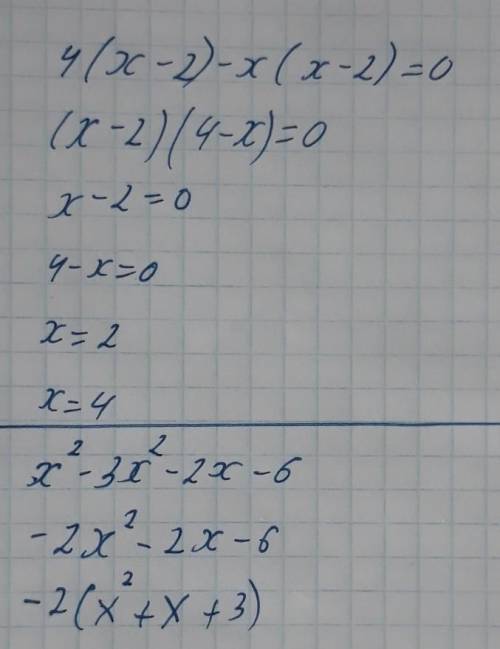 4(x-2)-x(x-2)=0
(x-2)(4-x)=0
x-2=0
4-x=0
x=2
x=4
x²-3x²-2x-6
-2x²-2x-6
-2(x²+x+3)